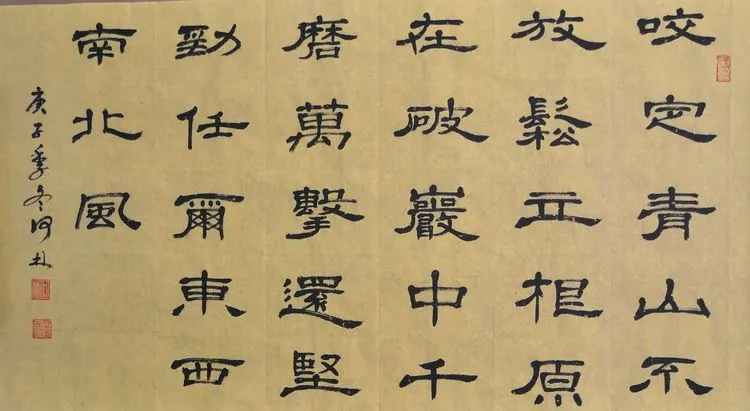 咬定青山不
放鬆立根原
在破巖中千
磨萬擊還堅
勁任爾東西
南北風
庚子季冬